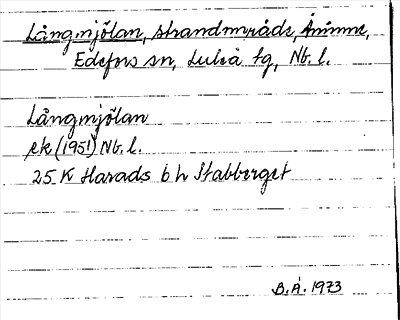 Långmjölan, strandområde,
Edefors sn, Luleå tg, Nb. l.
Långmjölan
ek (1951) Nb. l.
25 K Harads b h Stabberget
B.Å. 1973